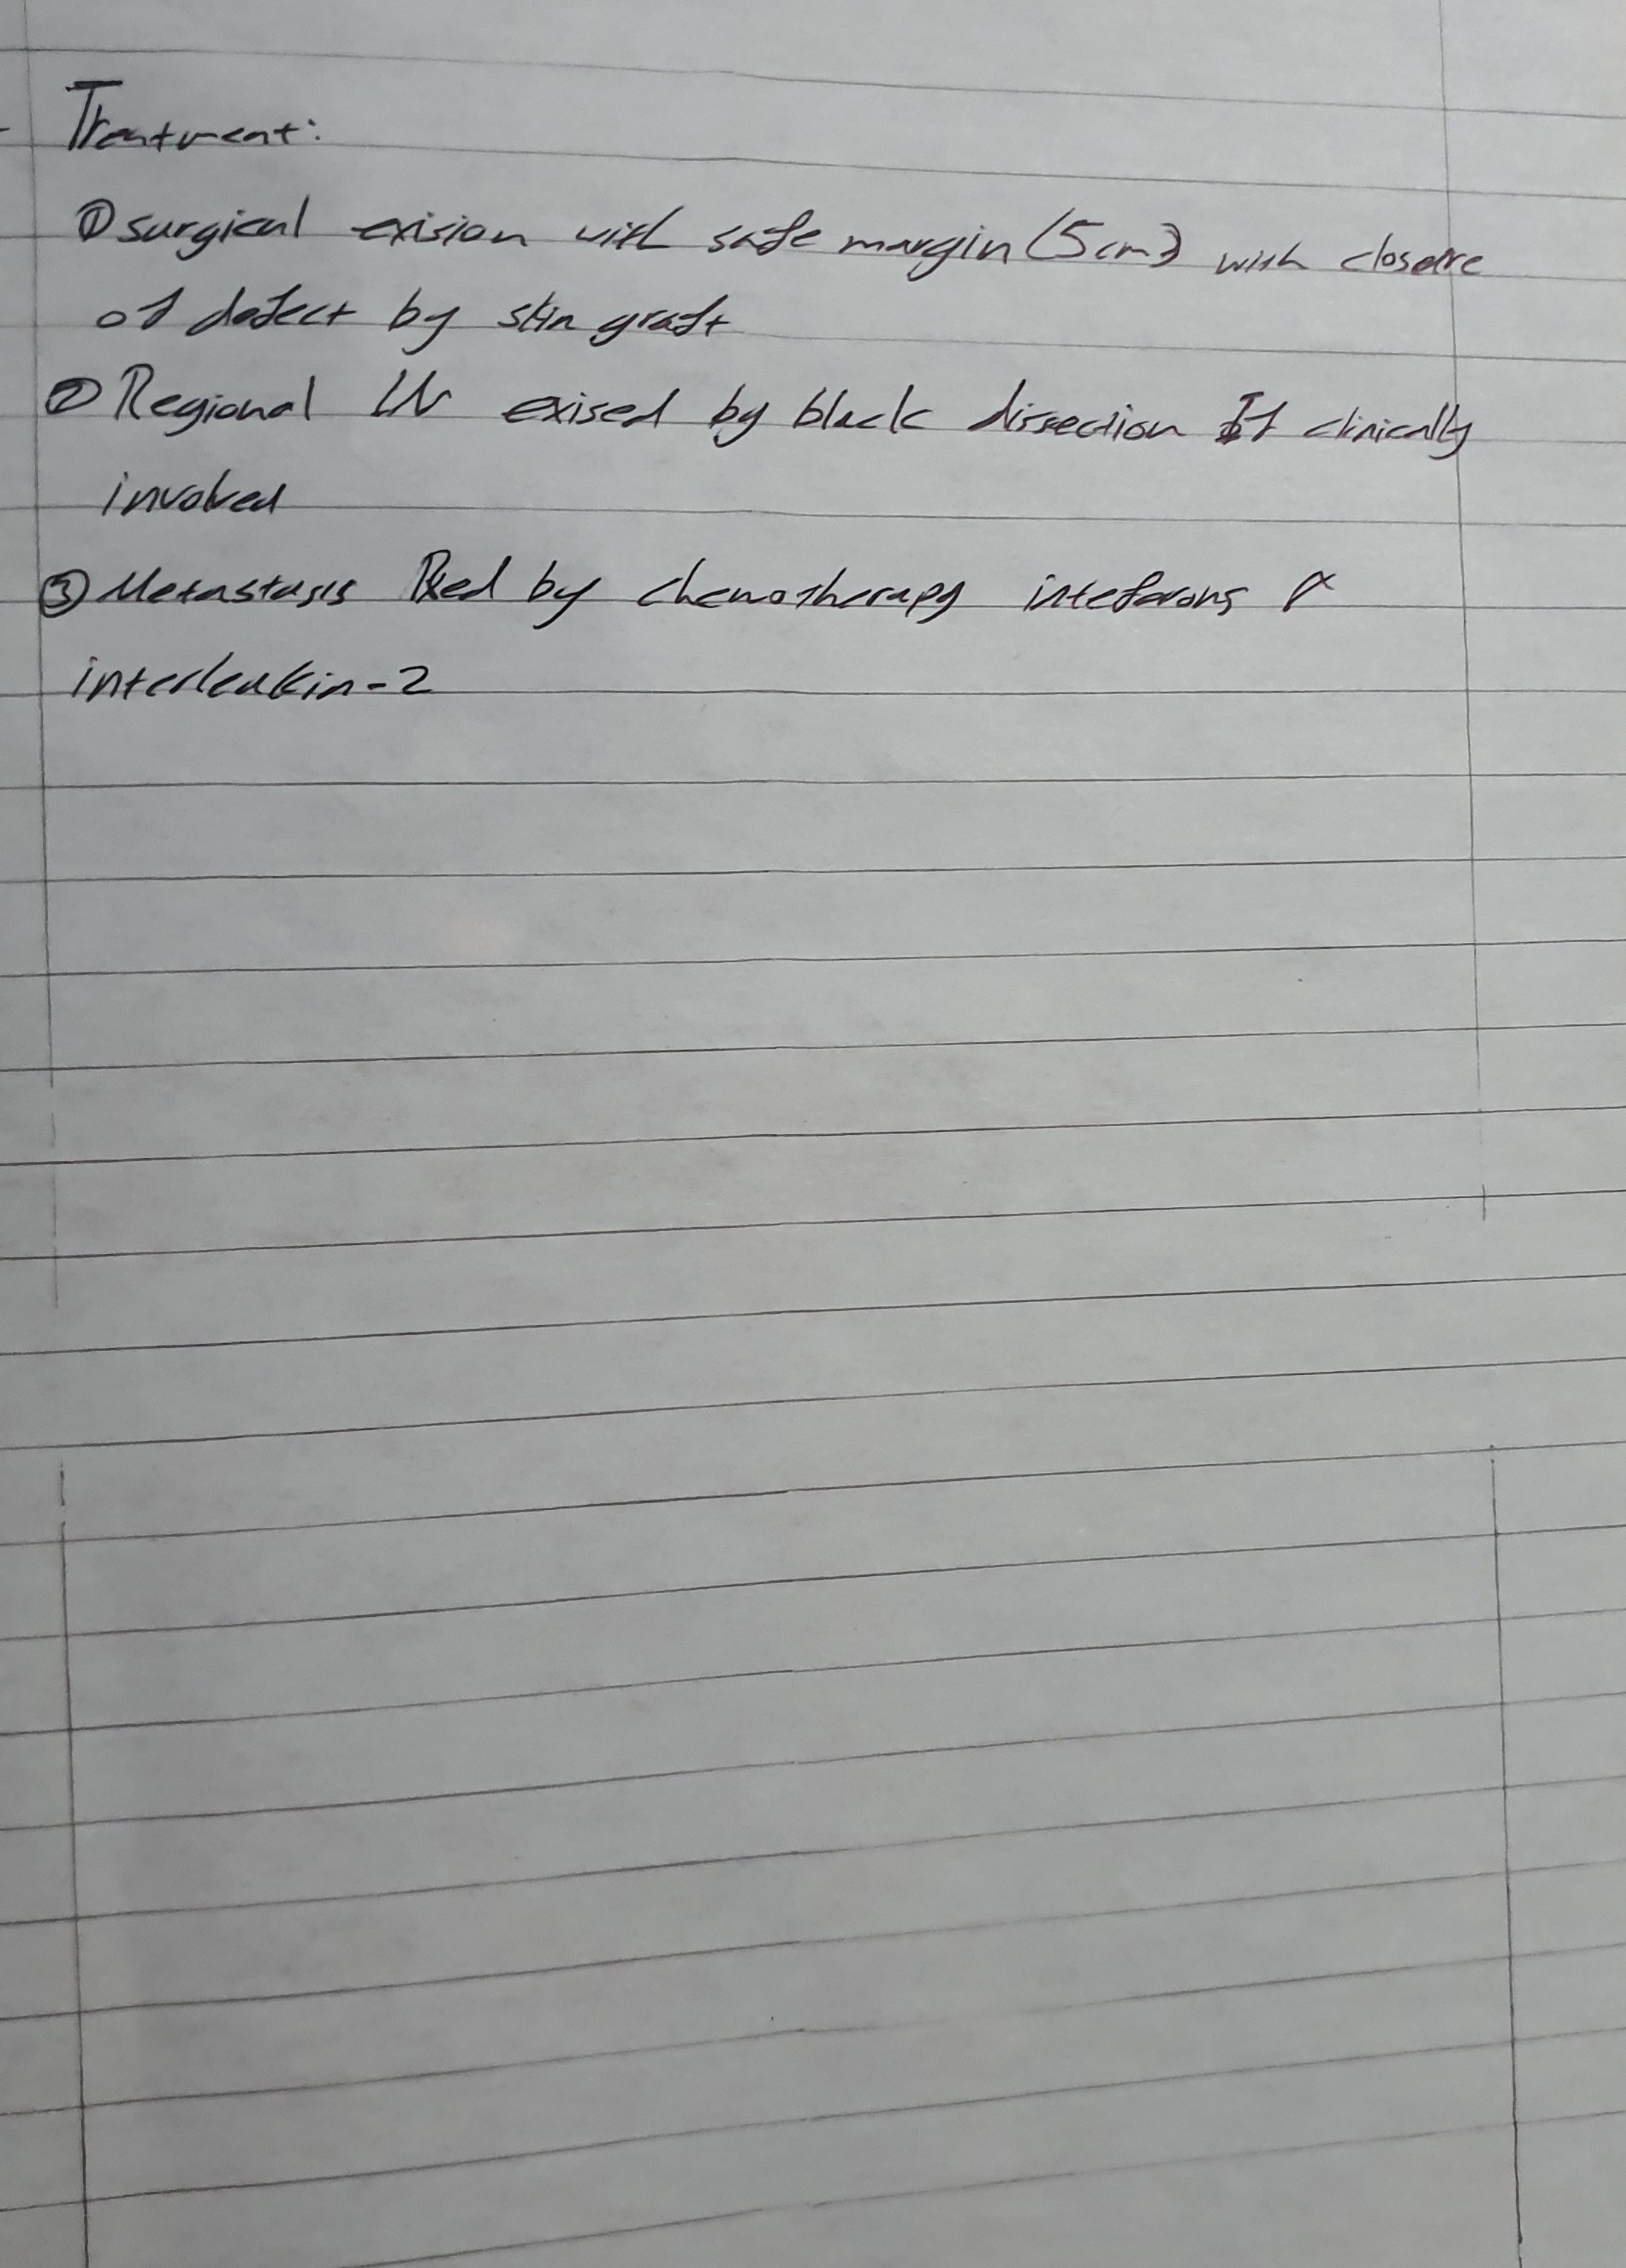 Treatment:
① surgical exision with safe margin (5cm) with closure
of defect by skin graft
② Regional LN exised by block dissection If clinically
involved
③ Metastasis Rxed by chemotherapy inteferons α
interleukin-2